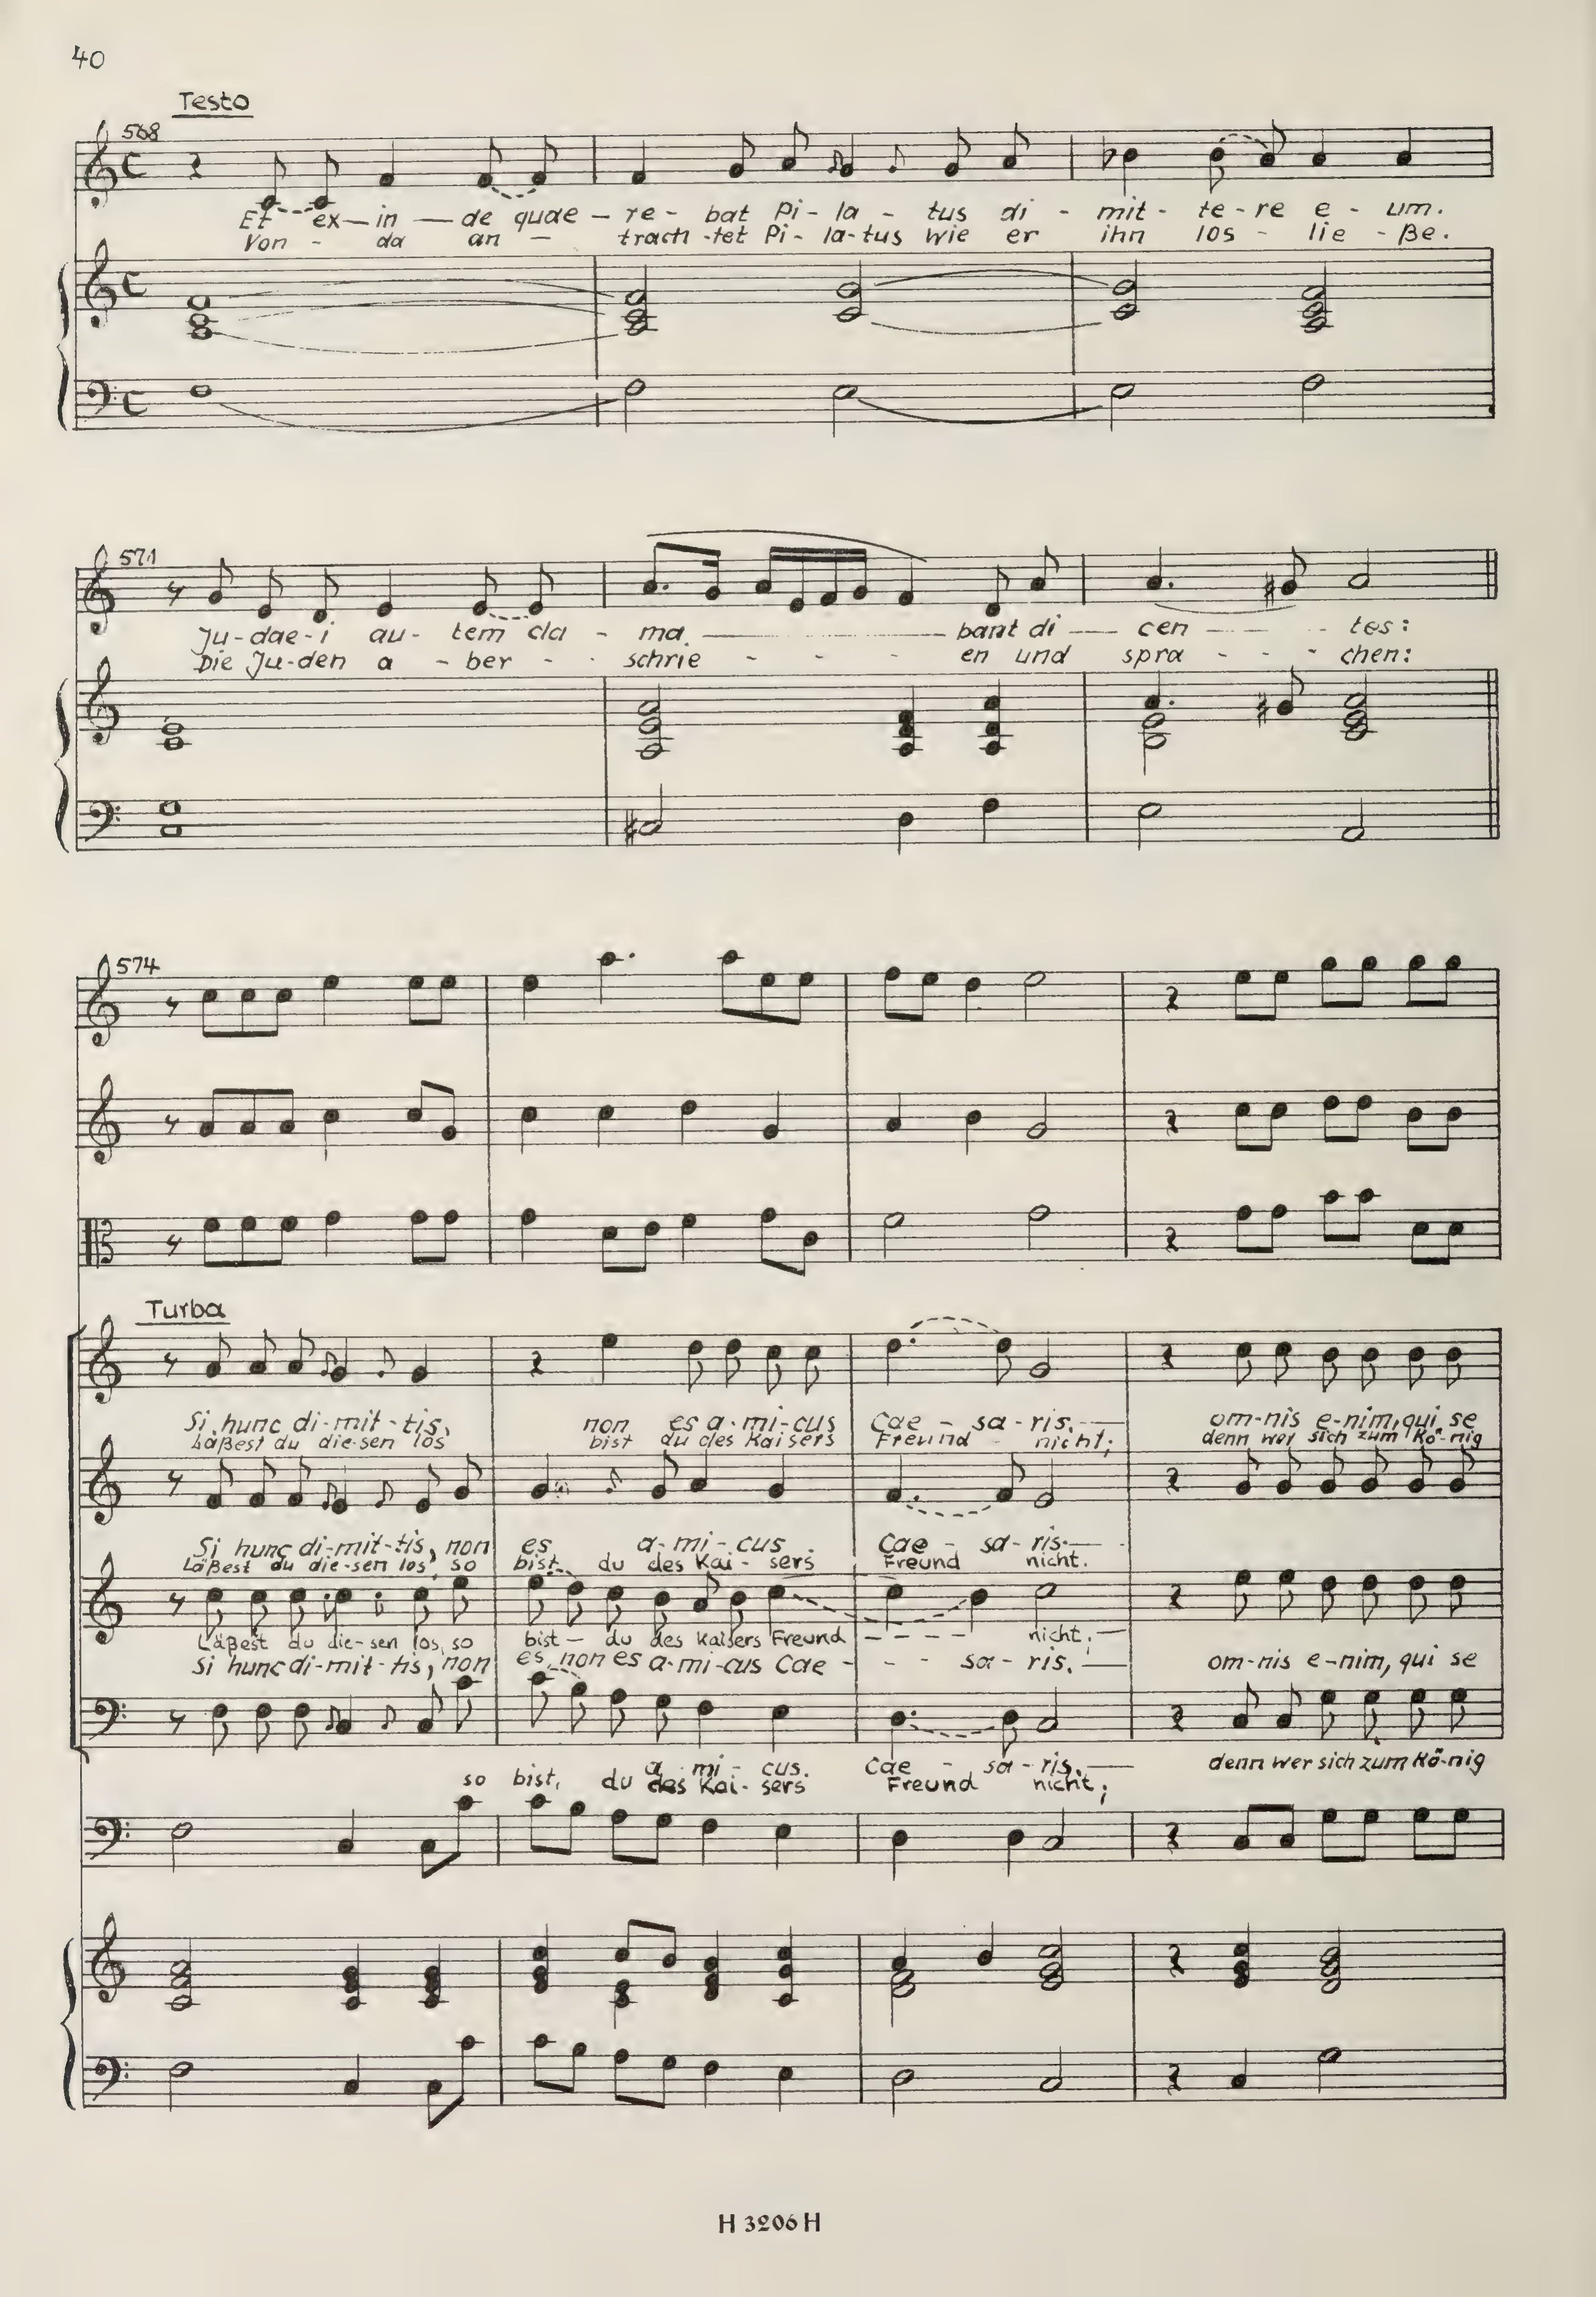 40
Testo
568
Et ex-in-de quae-re-bat Pi-la-tus di-mit-te-re e-um.
Von-da an-trach-tet Pi-la-tus wie er ihn los-lie-ße.
571
Ju-dae-i au-tem cla-ma-bant di-cen-tes:
Die Ju-den a-ber schrie-en und spra-chen:
574
Turba
Si hunc di-mit-tis, non es a-mi-cus Cae-sa-ris. om-nis e-nim, qui se
Läßest du die-sen los bist du des Kaisers Freund nicht; denn wer sich zum Kö-nig
Si hunc di-mit-tis, non es a-mi-cus Cae-sa-ris.
Läßest du die-sen los, so bist du des Kai-sers Freund nicht.
Läßest du die-sen los, so bist du des Kaisers Freund nicht;
Si hunc di-mit-tis, non es, non es a-mi-cus Cae-sa-ris. om-nis e-nim, qui se
a-mi-cus. Cae-sa-ris. denn wer sich zum Kö-nig
so bist, du des Kai-sers Freund nicht;
H 3206 H